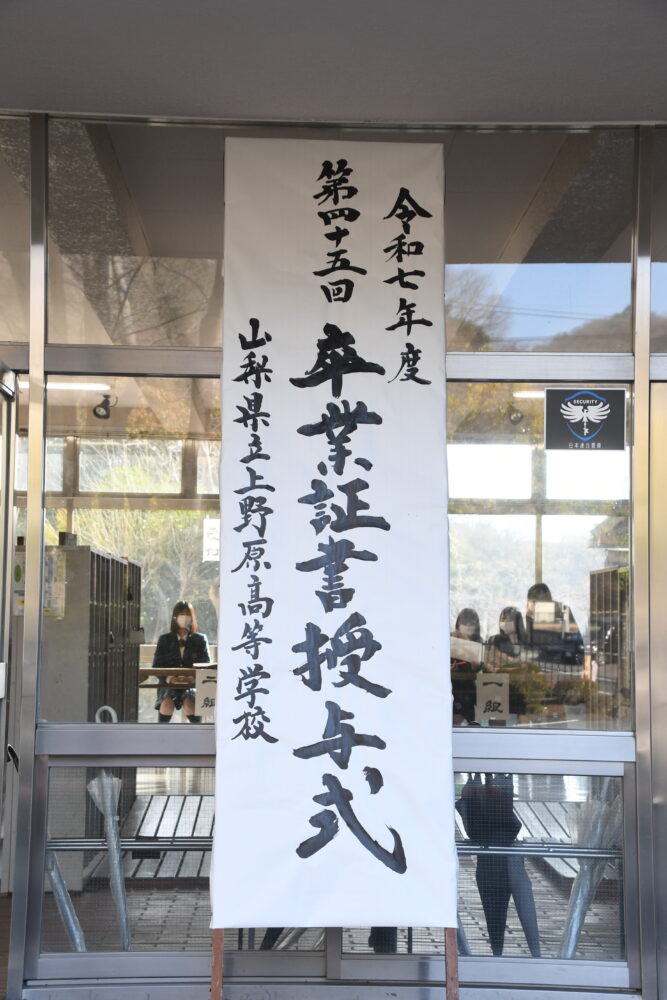 令和七年度
第四十五回 卒業証書授与式
山梨県立上野原高等学校
SECURITY
日本連合警備
二組
一組